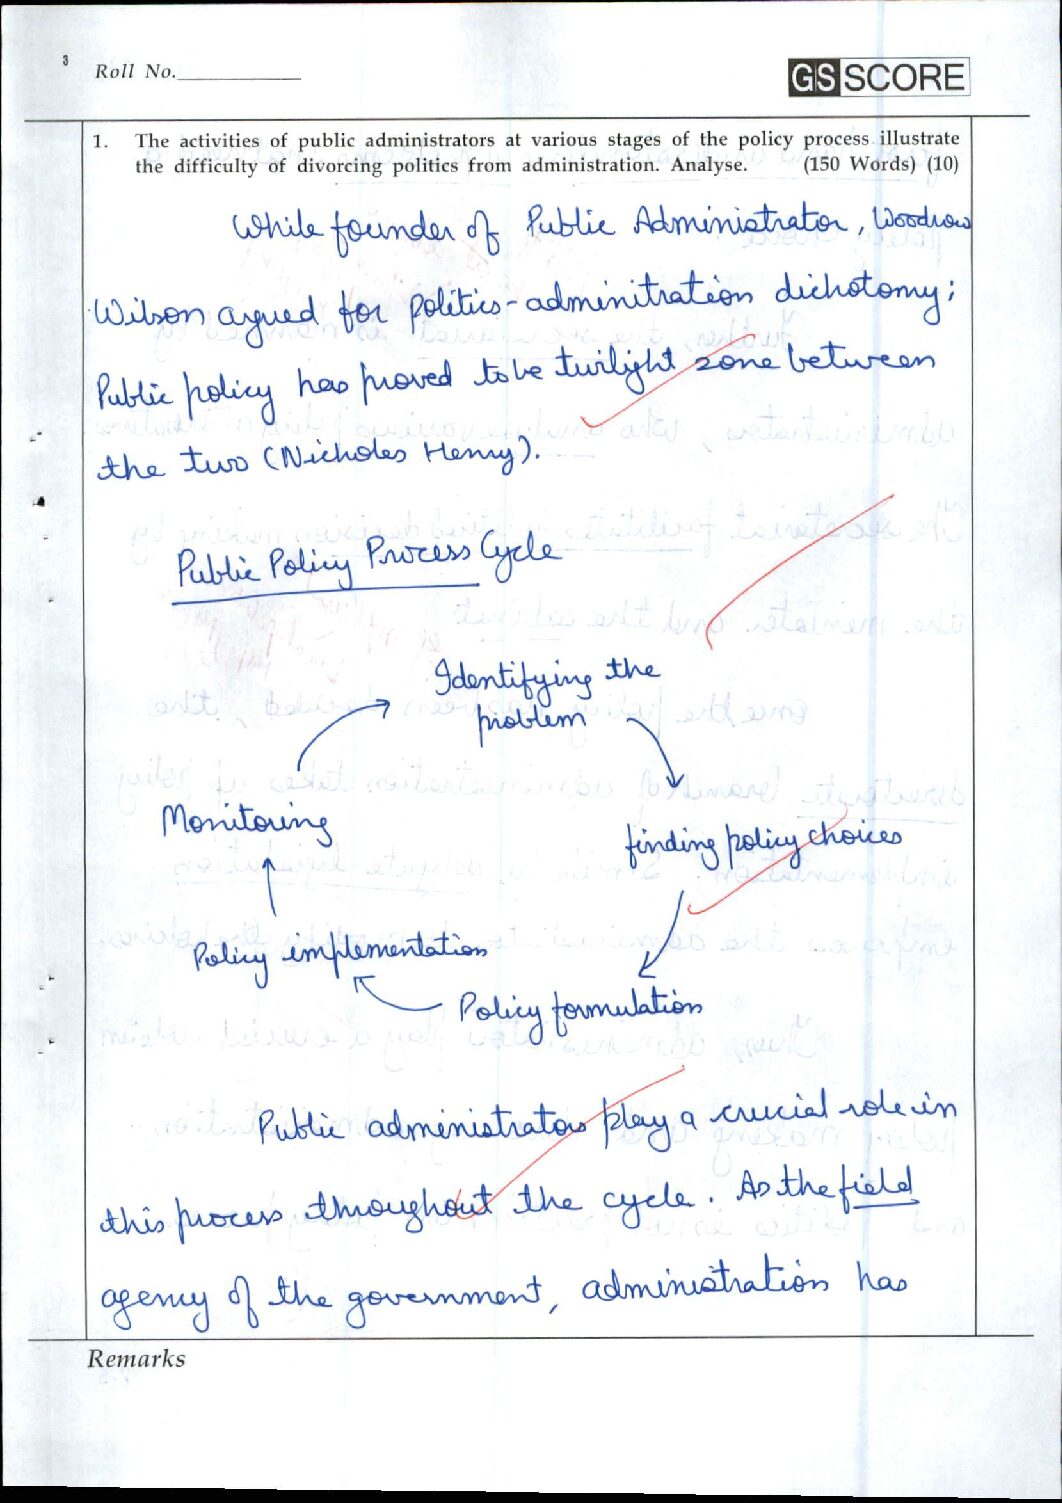 3
Roll No.
GS SCORE
1. The activities of public administrators at various stages of the policy process illustrate
the difficulty of divorcing politics from administration. Analyse. (150 Words) (10)
While founder of Public Administrator, Woodrow
Wilson agued for politics-adminitration dichotomy;
Public policy has proved to be twilight zone between
the two (Nicholes Henry).
Public Policy Process Cycle
Identifying the
problem
Monitoring
finding policy choices
Policy implementation
Policy formulation
Public administrators play a crucial role in
this process throughout the cycle. As the field
agency of the government, administration has
Remarks